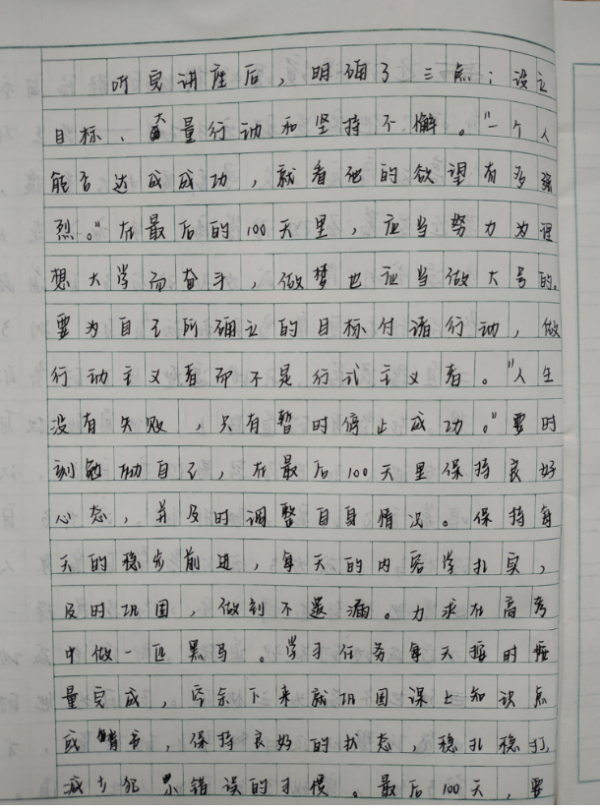 听完讲座后，明确了三点：设立
目标、大量行动和坚持不懈。"一个人
能否达成成功，就看他的欲望有多强
烈。"在最后的100天里，应当努力为理
想大学而奋斗，做梦也应当做大号的。
要为自己所确立的目标付诸行动，做
行动主义者而不是行式主义者。"人生
没有失败，只有暂时停止成功。"要时
刻勉励自己，在最后100天里保持良好
心态，并及时调整自身情况。保持每
天的稳步前进，每天的内容学扎实，
及时巩固，做到不遗漏。力求在高考
中做一匹黑马。学习任务每天按时按
量完成，空余下来就巩固课上知识点
或错书，保持良好的状态，稳扎稳打，
减少犯错误的习惯。最后100天，要